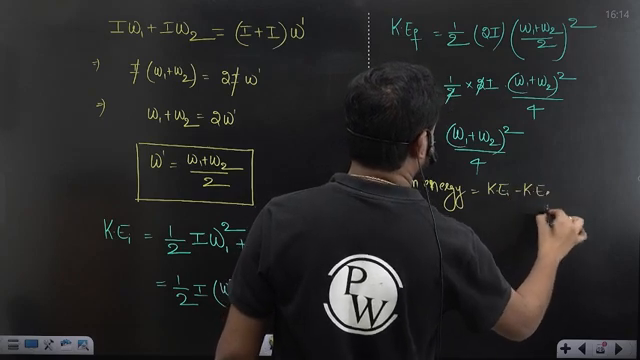 16:14
Iω₁ + Iω₂ = (I+I) ω'
⇒ I (ω₁+ω₂) = 2I ω'
⇒ ω₁ + ω₂ = 2ω'
ω' = (ω₁+ω₂)/2
K.Eᵢ = 1/2 Iω₁² +
= 1/2 I (ω
K.E_f = 1/2 (2I) ((ω₁+ω₂)/2)²
1/2 × 2I (ω₁+ω₂)²/4
(ω₁+ω₂)²/4
energy = K.Eᵢ - K.E
P
W